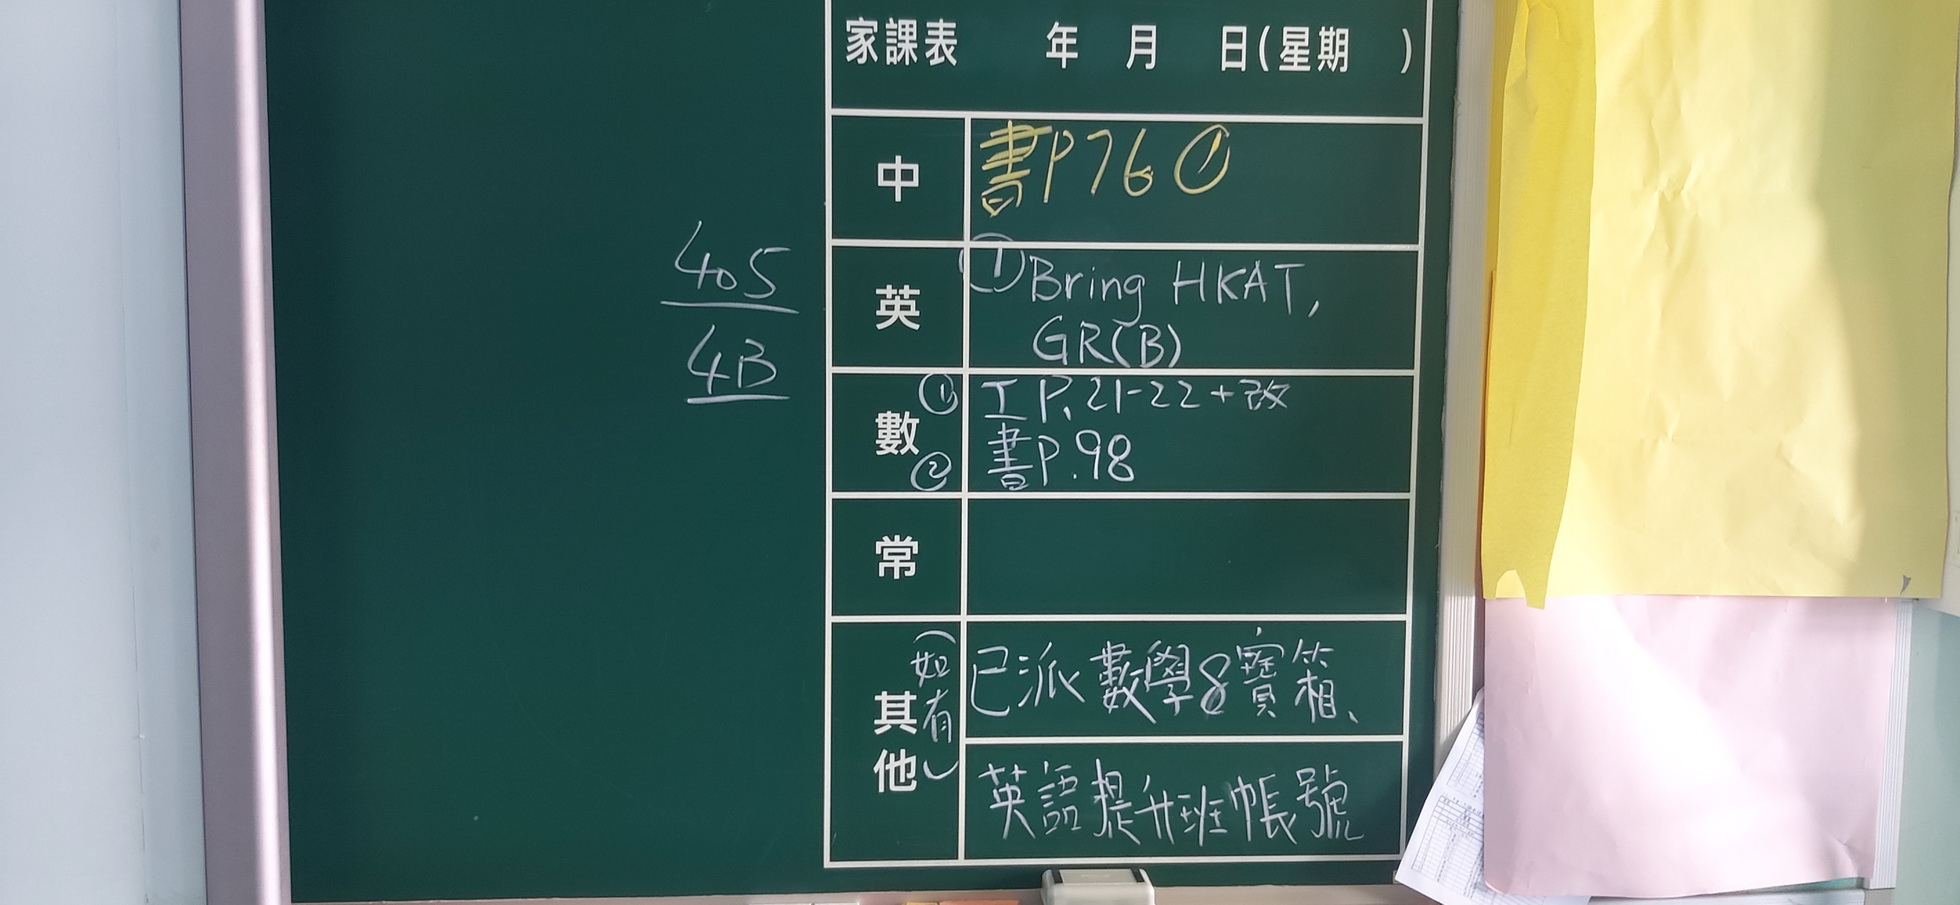 家課表 年 月 日(星期 )
中 書P76①
405
4B
英 ①Bring HKAT,
GR(B)
數 ① 工P.21-22+改
② 書P.98
常
其他(如有) 已派數學8寶箱、
英語提升班帳號